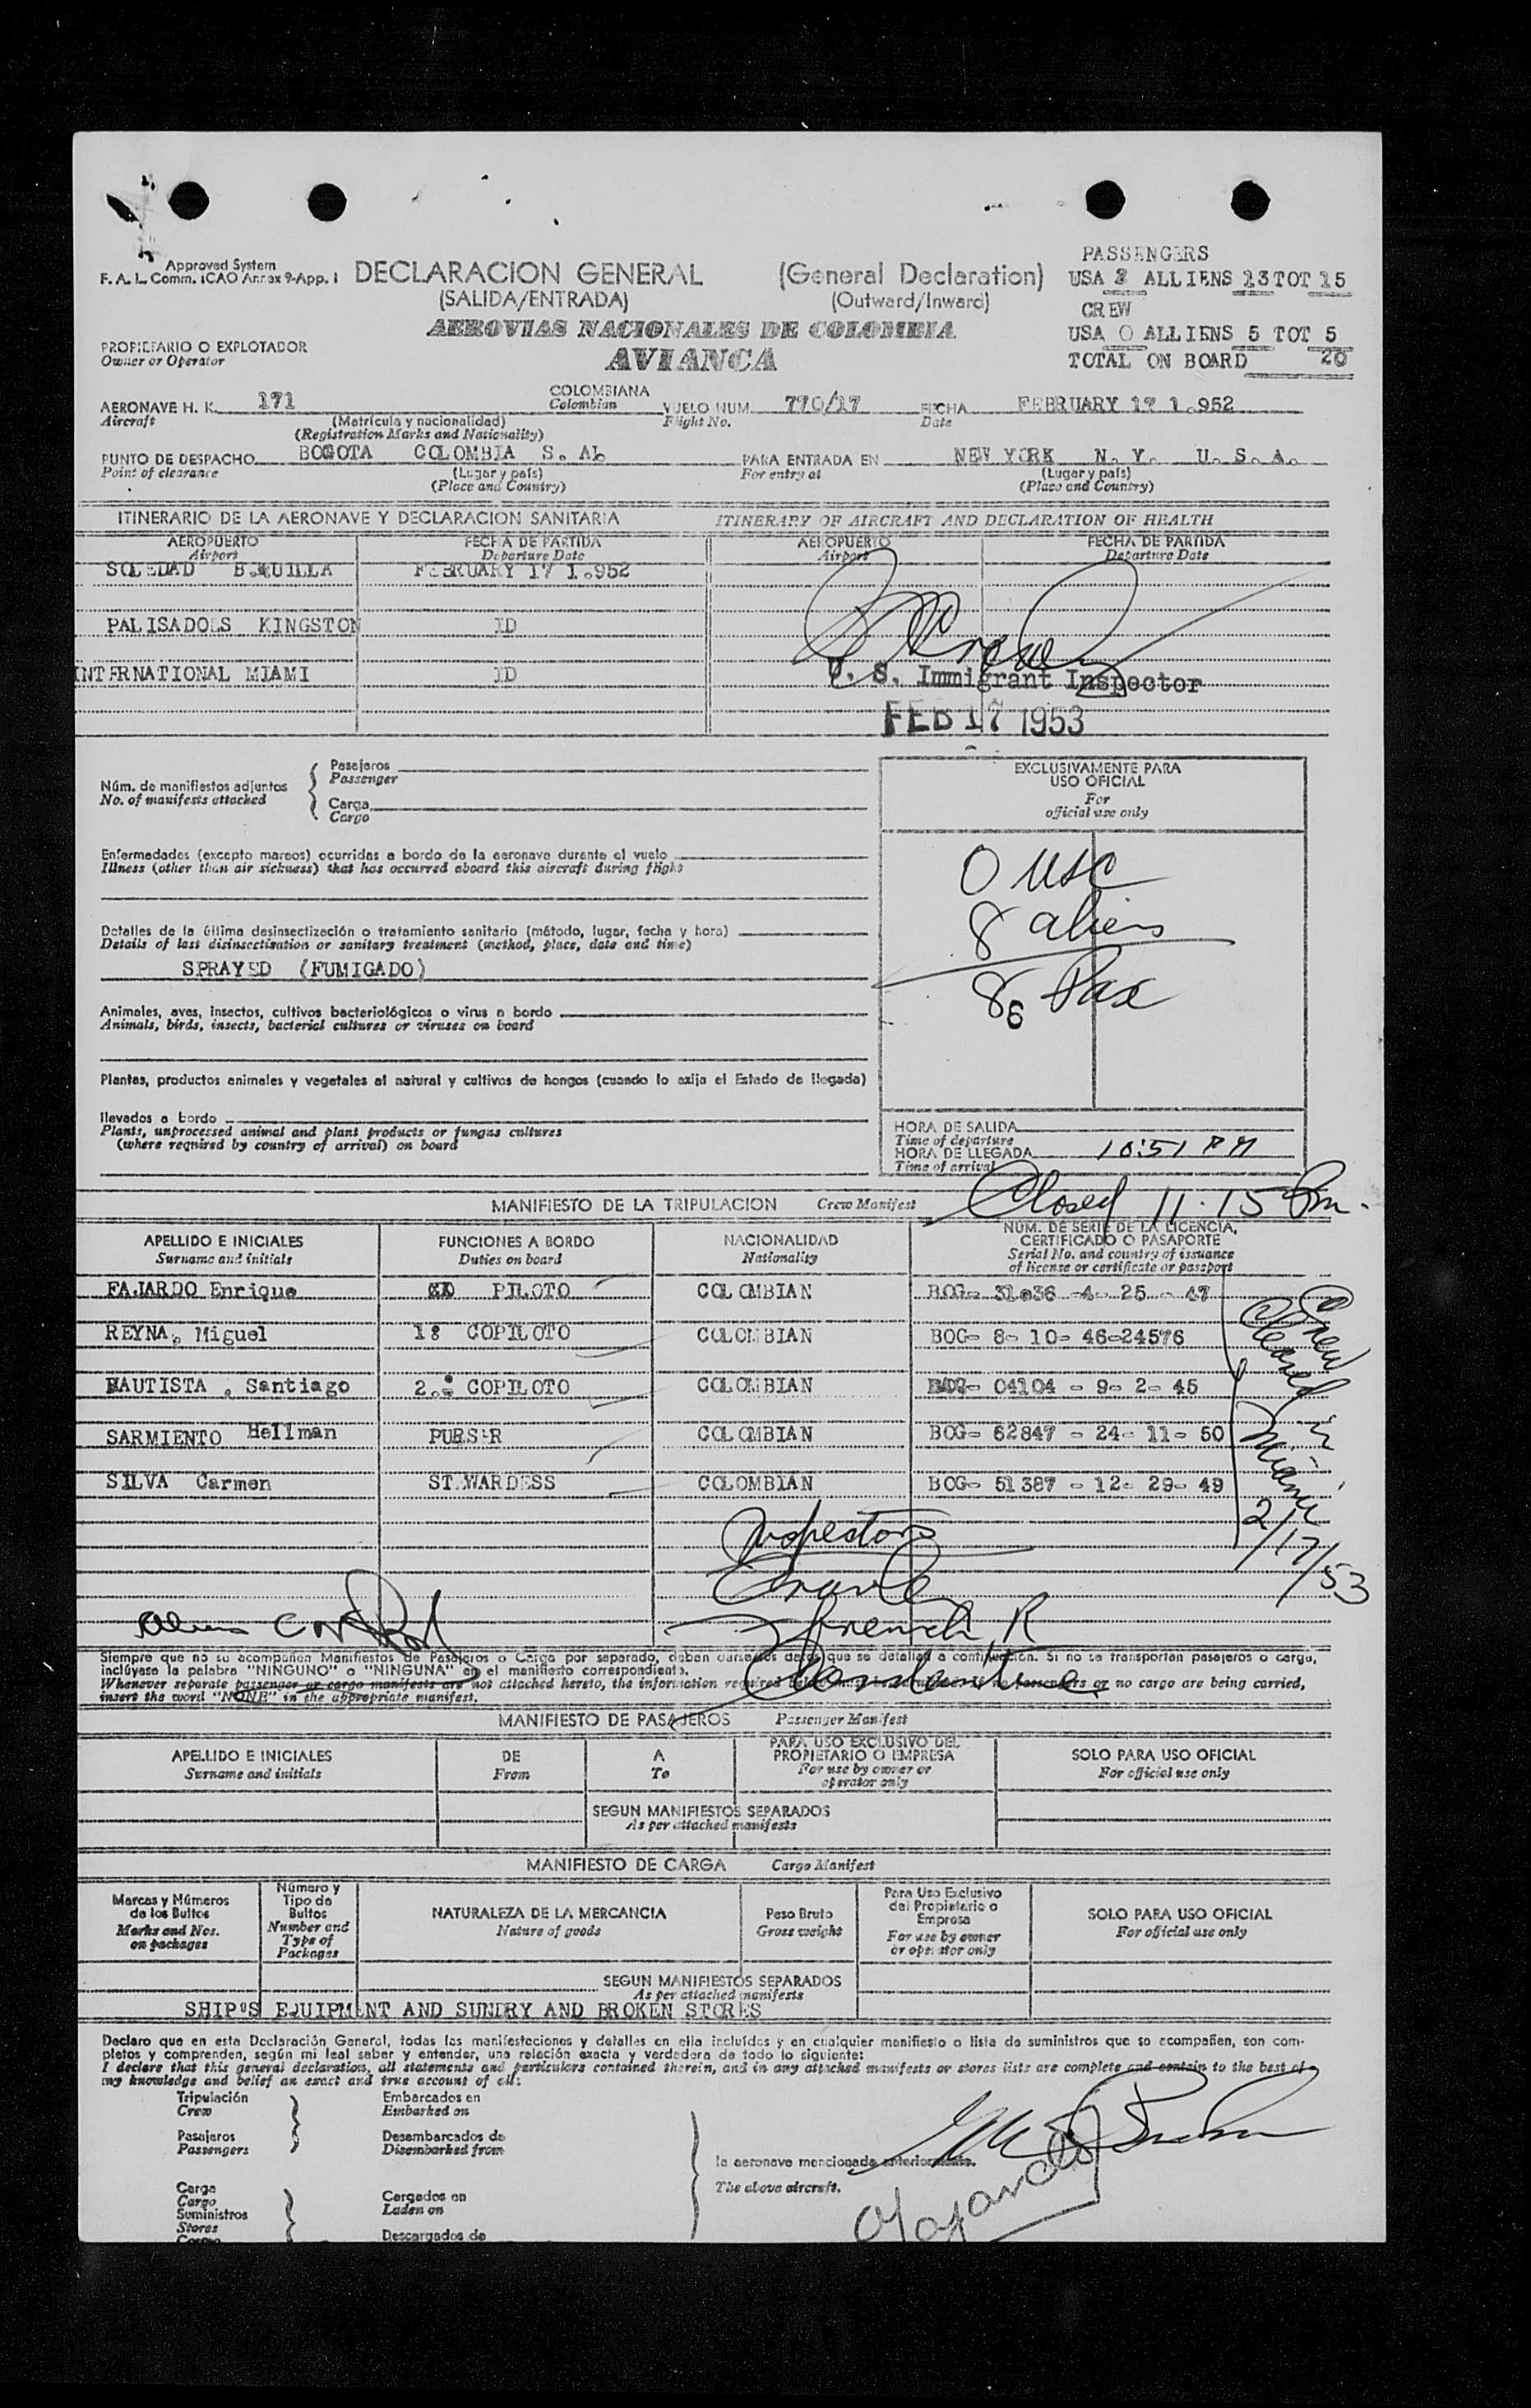 Approved System
F. A. L. Comm. ICAO Annex 9-App. I
DECLARACION GENERAL (General Declaration)
(SALIDA/ENTRADA) (Outward/Inward)
AEROVIAS NACIONALES DE COLOMBIA
AVIANCA
PASSENGERS
USA 2 ALLIENS 13 TOT 15
CREW
USA 0 ALLIENS 5 TOT 5
TOTAL ON BOARD 20
PROPIETARIO O EXPLOTADOR
Owner or Operator
AERONAVE H. K. 171 COLOMBIANA VUELO NUM. 770/17 FECHA FEBRUARY 17 1.952
Aircraft (Matrícula y nacionalidad) Colombian Flight No. Date
(Registration Marks and Nationality)
PUNTO DE DESPACHO BOGOTA COLOMBIA S. A. PARA ENTRADA EN NEW YORK N. Y. U. S. A.
Point of clearance (Lugar y país) For entry at (Lugar y país)
(Place and Country) (Place and Country)
ITINERARIO DE LA AERONAVE Y DECLARACION SANITARIA ITINERARY OF AIRCRAFT AND DECLARATION OF HEALTH
AEROPUERTO FECHA DE PARTIDA AEROPUERTO FECHA DE PARTIDA
Airport Departure Date Airport Departure Date
SOLEDAD B.QUILLA FEBRUARY 17 1.952
PALISADOLS KINGSTON ID
INTERNATIONAL MIAMI ID
U. S. Immigrant Inspector
FEB 17 1953
Núm. de manifiestos adjuntos
No. of manifests attached
Pasajeros
Passenger
Carga
Cargo
EXCLUSIVAMENTE PARA
USO OFICIAL
For
official use only
0 USC
8 aliens
8 Pax
6
Enfermedades (excepto mareos) ocurridas a bordo de la aeronave durante el vuelo
Illness (other than air sickness) that has occurred aboard this aircraft during flight
Detalles de la última desinsectización o tratamiento sanitario (método, lugar, fecha y hora)
Details of last disinsectisation or sanitary treatment (method, place, date and time)
SPRAYED (FUMIGADO)
Animales, aves, insectos, cultivos bacteriológicos o virus a bordo
Animals, birds, insects, bacterial cultures or viruses on board
Plantas, productos animales y vegetales al natural y cultivos de hongos (cuando lo exija el Estado de llegada)
llevados a bordo
Plants, unprocessed animal and plant products or fungus cultures
(where required by country of arrival) on board
HORA DE SALIDA
Time of departure
HORA DE LLEGADA 10:51 PM
Time of arrival
Closed 11:15 Pm.
MANIFIESTO DE LA TRIPULACION Crew Manifest
APELLIDO E INICIALES FUNCIONES A BORDO NACIONALIDAD NUM. DE SERIE DE LA LICENCIA, CERTIFICADO O PASAPORTE
Surname and initials Duties on board Nationality Serial No. and country of issuance of license or certificate or passport
FAJARDO Enrique PILOTO COLOMBIAN BOG- 31036 -4- 25 - 47
REYNA, Miguel 1: COPILOTO COLOMBIAN BOG- 8- 10- 46-24576
BAUTISTA , Santiago 2.: COPILOTO COLOMBIAN BOG- 04104 - 9- 2- 45
SARMIENTO Hellman PURSER COLOMBIAN BOG- 62847 - 24- 11- 50
SILVA Carmen STEWARDESS COLOMBIAN BOG- 51387 - 12- 29- 49
Crew Cleared in Miami 2/17/53
Inspectors
French, R
Siempre que no su acompañen Manifiestos de Pasajeros o Carga por separado, deben darse los datos que se detallan a continuación. Si no se transportan pasajeros o carga,
inclúyase la palabra "NINGUNO" o "NINGUNA" en el manifiesto correspondiente.
Whenever separate passenger or cargo manifests are not attached hereto, the information required or no cargo are being carried,
insert the word "NONE" in the appropriate manifest.
MANIFIESTO DE PASAJEROS Passenger Manifest
APELLIDO E INICIALES DE A PARA USO EXCLUSIVO DEL PROPIETARIO O EMPRESA SOLO PARA USO OFICIAL
Surname and initials From To For use by owner or operator only For official use only
SEGUN MANIFIESTOS SEPARADOS
As per attached manifests
MANIFIESTO DE CARGA Cargo Manifest
Marcas y Números de los Bultos Número y Tipo de Bultos NATURALEZA DE LA MERCANCIA Peso Bruto Para Uso Exclusivo del Propietario o Empresa SOLO PARA USO OFICIAL
Marks and Nos. on packages Number and Type of Packages Nature of goods Gross weight For use by owner or operator only For official use only
SEGUN MANIFIESTOS SEPARADOS
As per attached manifests
SHIP'S EQUIPMENT AND SUNDRY AND BROKEN STORES
Declaro que en esta Declaración General, todas las manifestaciones y detalles en ella incluídos y en cualquier manifiesto o lista de suministros que se acompañen, son com-
pletos y comprenden, según mi leal saber y entender, una relación exacta y verdadera de todo lo siguiente:
I declare that this general declaration, all statements and particulars contained therein, and in any attached manifests or stores lists are complete and contain to the best of
my knowledge and belief an exact and true account of all:
Tripulación Embarcados en
Crew Embarked on
Pasajeros Desembarcados de
Passengers Disembarked from
la aeronave mencionada anteriormente.
The above aircraft.
Carga Cargados en
Cargo Laden on
Suministros
Stores
Descargados de